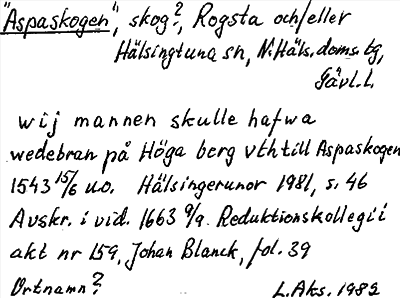 "Aspaskogen", skog?, Rogsta och/eller
Hälsingtuna sn, N. Häls. doms. tg,
Gävl. l.
wij mannen skulle hafwa
wedebran på Höga berg vthtill Aspaskogen
1543 15/6 u.o. Hälsingerunor 1981, s. 46
Avskr. i vid. 1663 9/9. Reduktionskollegii
akt nr 159, Johan Blanck, fol. 39
Ortnamn? L. Aks. 1982